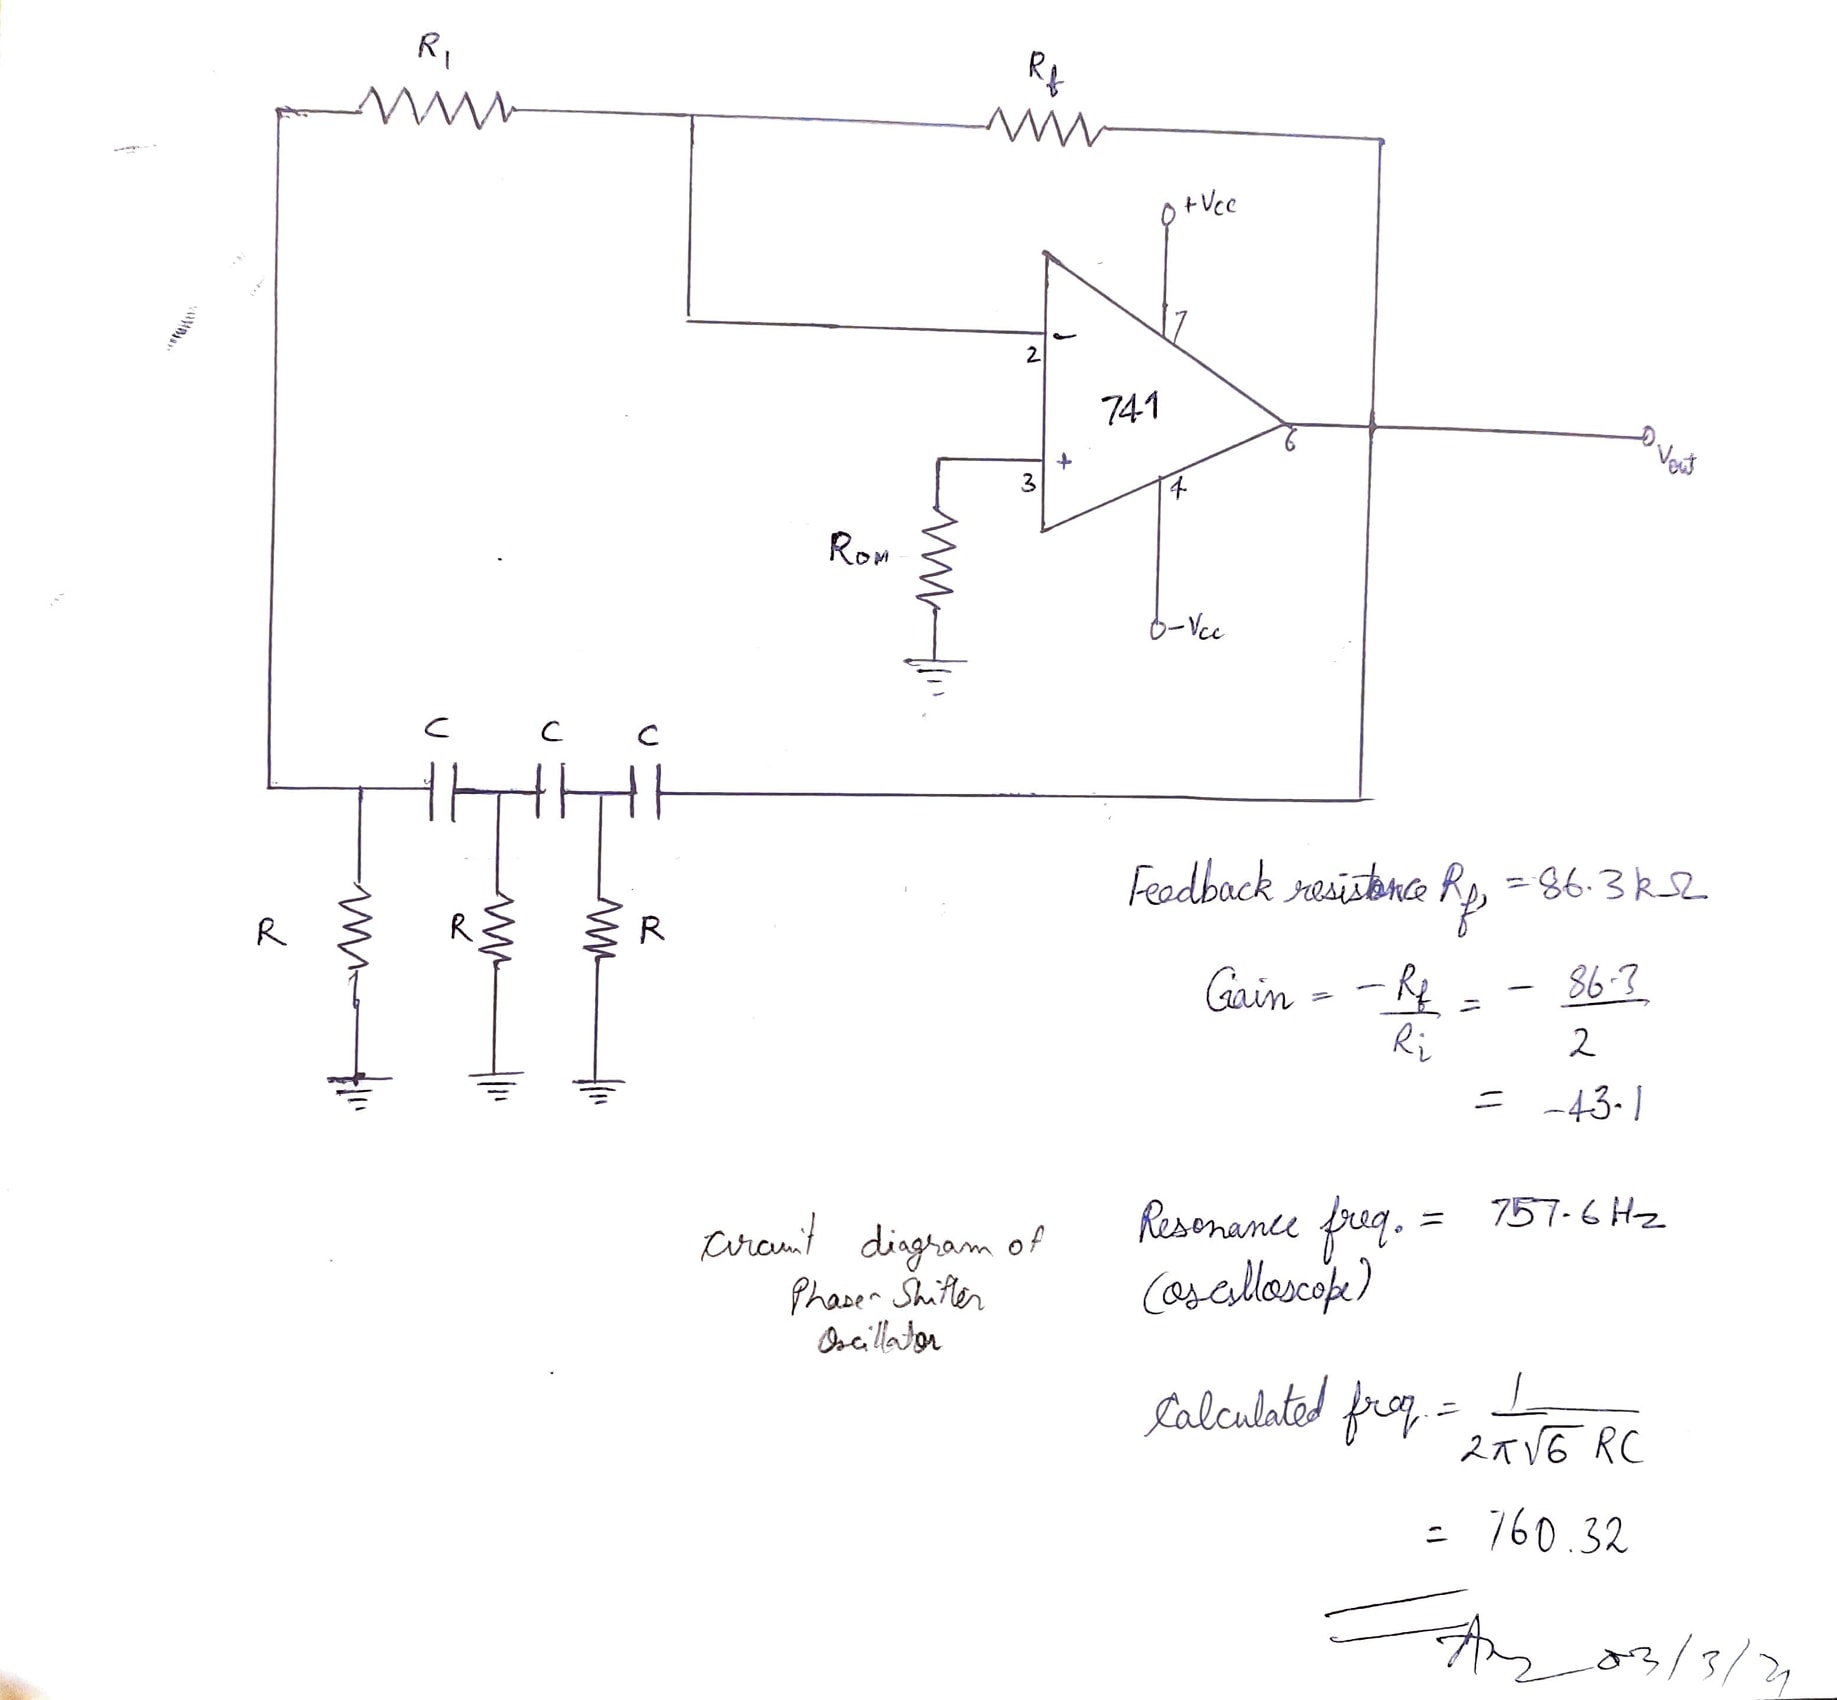 R1
Rf
+Vcc
7
2
-
741
6
Vout
+
3
4
ROM
-Vcc
C C C
R R R
Feedback resistance Rf, = 86.3 kΩ
Gain = -Rf/Ri = - 86.3/2
= -43.1
Circuit diagram of
Phase-Shifter
Oscillator
Resonance freq. = 757.6 Hz
(oscilloscope)
Calculated freq. = 1/2π√6 RC
= 760.32
03/3/21